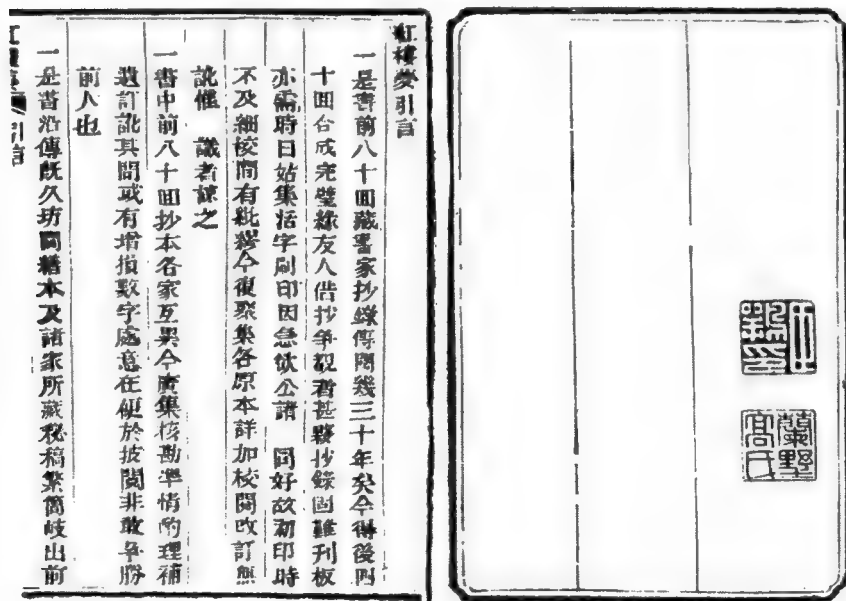 臣鶚印
蘭墅
高氏
紅樓夢引言
一是書前八十回藏書家抄錄傳閱幾三十年矣今得後四
十回合成完璧緣友人借抄爭覩者甚夥抄錄固難刊板
亦需時日姑集活字刷印因急欲公諸 同好故初印時
不及細校間有紕繆今復聚集各原本詳加校閱改訂無
訛惟 識者諒之
一書中前八十回抄本各家互異今廣集核勘準情酌理補
遺訂訛其間或有增損數字處意在便於披閱非敢爭勝
前人也
一是書沿傳既久坊間繕本及諸家所藏秘稿繁簡岐出前
紅樓夢 引言